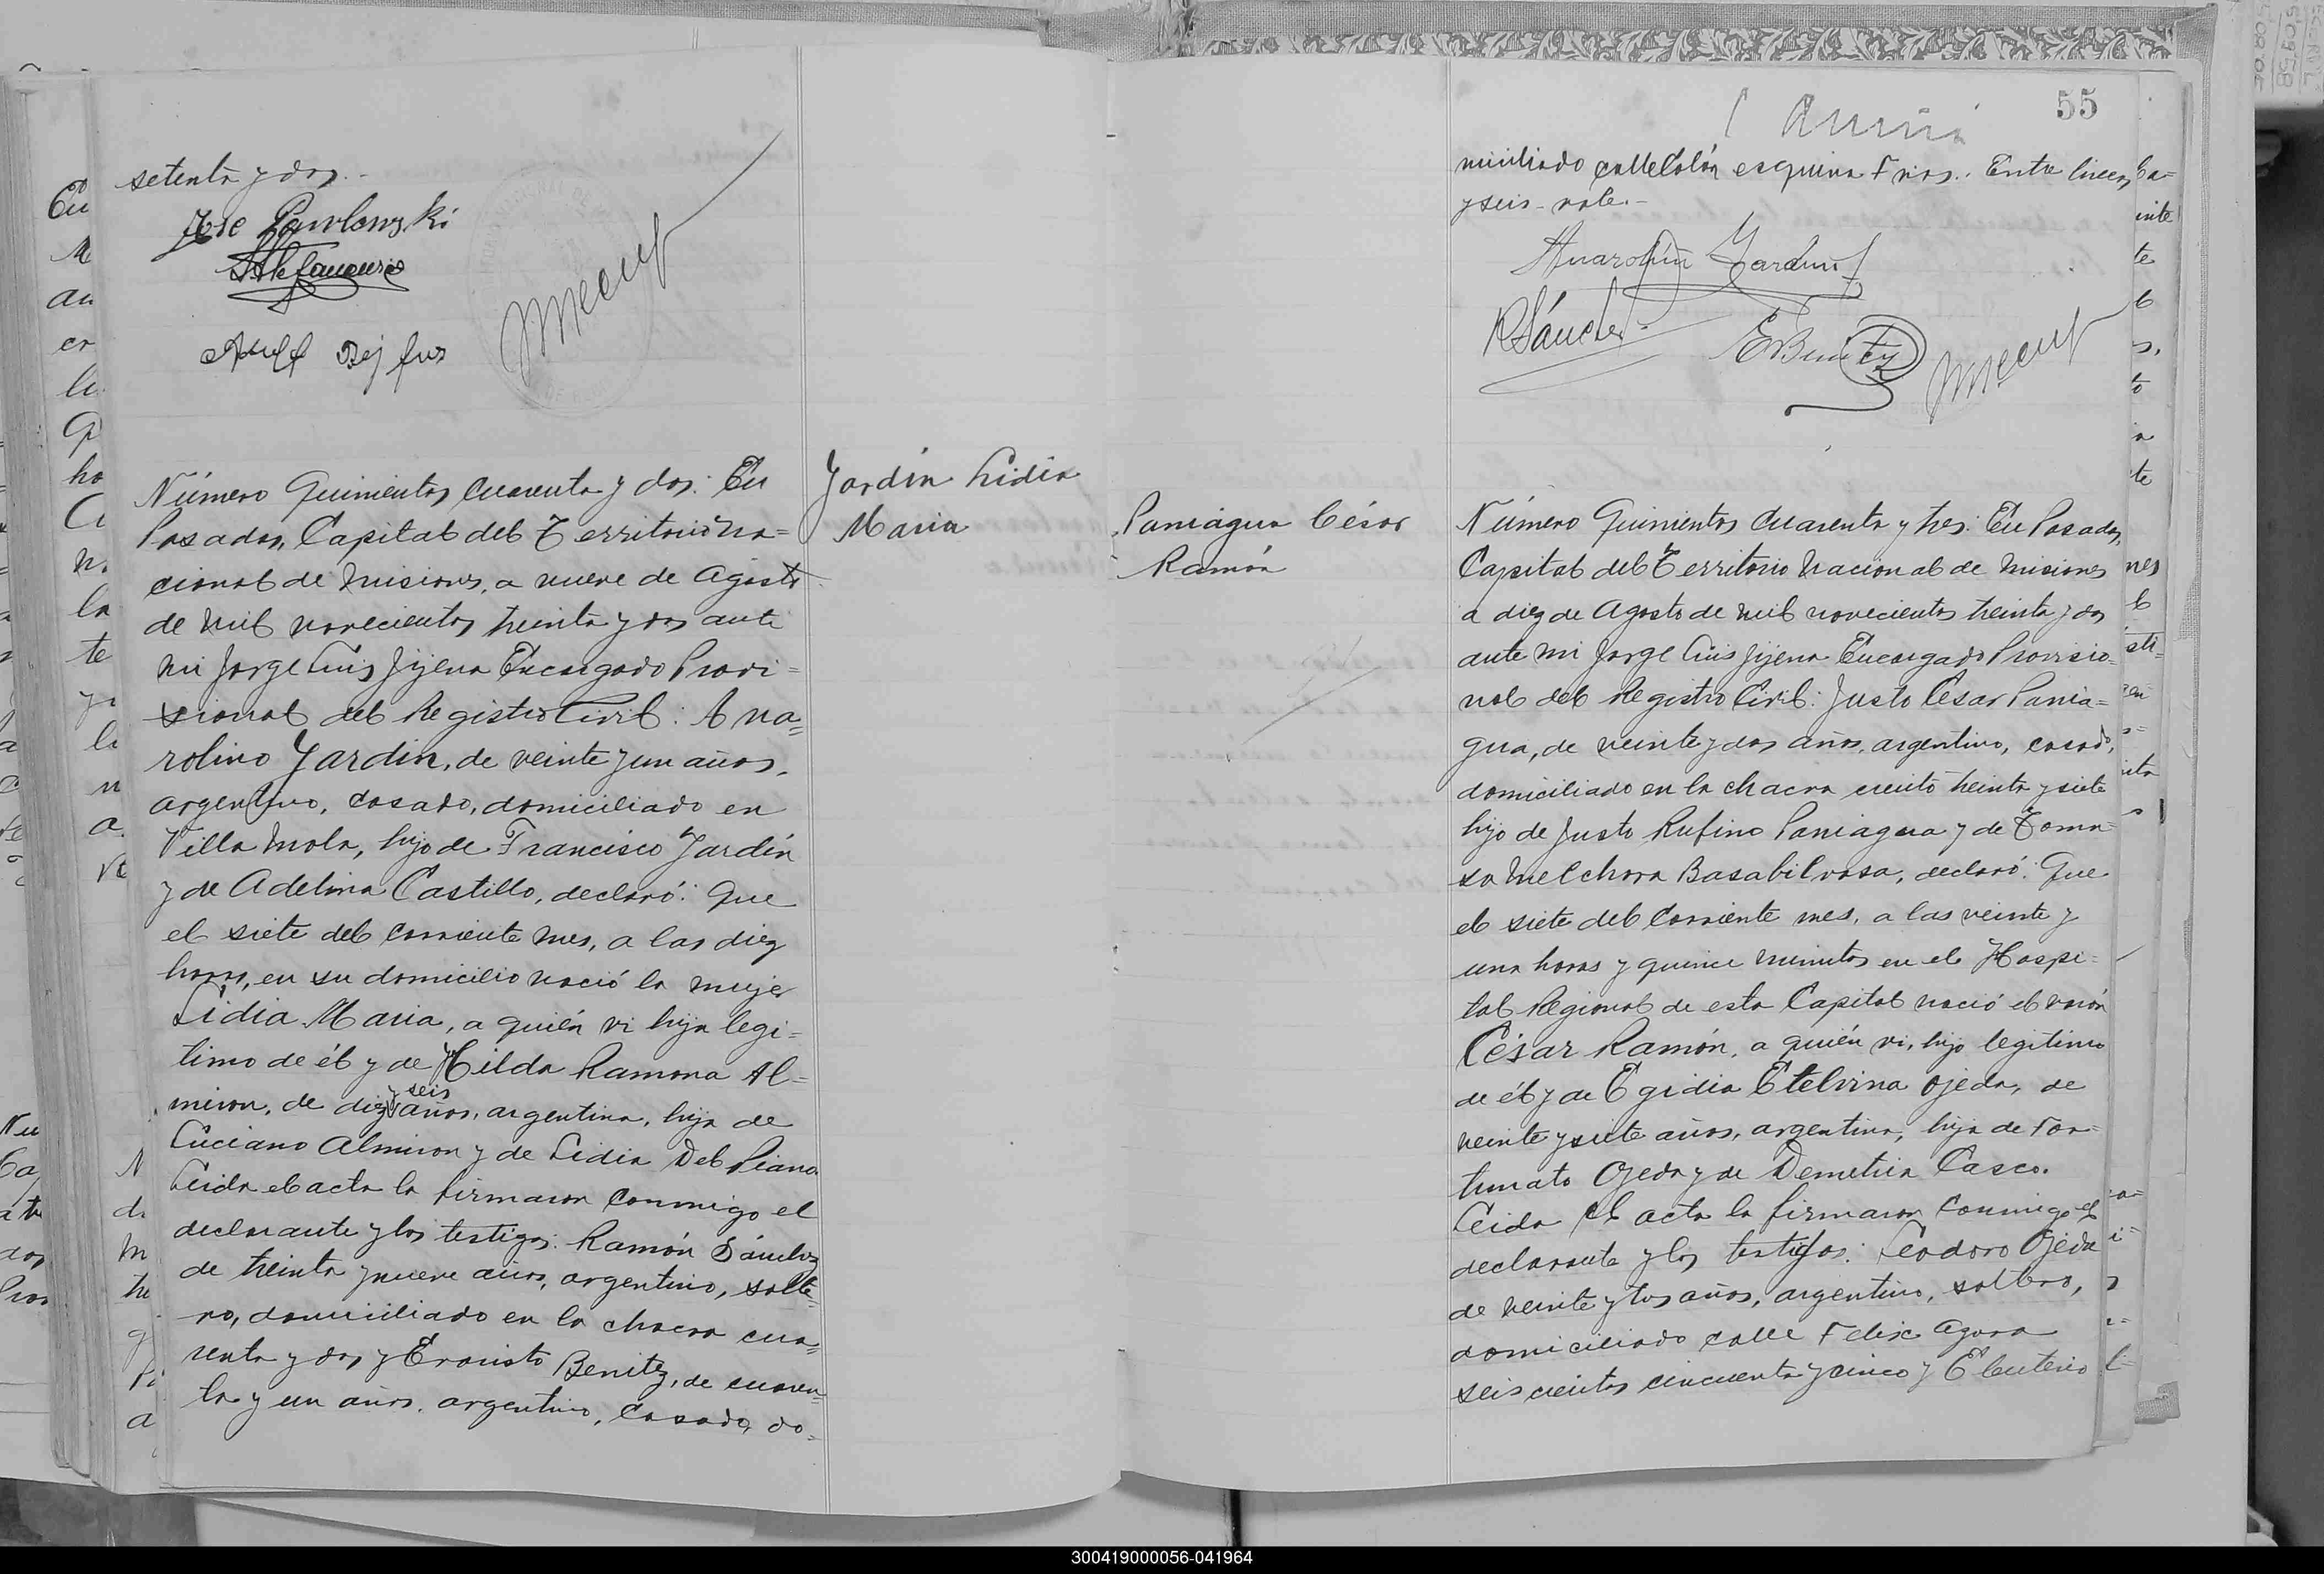 setenta y dos.-
José Pawlowski
Número Quinientos cuarenta y dos: En
Posadas, Capital del Territorio Na=
cional de Misiones, a nueve de Agosto
de mil novecientos treinta y dos ante
mi Jorge Luis Jijena Encargado Provi=
sional del Registro Civil: Ana=
rolino Jardin, de veinte y un años,
argentino, casado, domiciliado en
Villa Mola, hijo de Francisco Jardín
y de Adelina Castillo, declaró: Que
el siete del corriente mes, a las diez
horas, en su domicilio nació la mujer
Lidia Maria, a quién vi hija legi=
timo de él y de Hilda Ramona Al=
y seis
miron, de diez años, argentina, hija de
Luciano Almiron y de Lidia Del Piano
Leida el acta la firmaron conmigo el
declarante y los testigos: Ramón Sánchez
de treinta y nueve años, argentino, solte=
ro, domiciliado en la chacra cua=
renta y dos y Evaristo Benitez, de cuaren=
ta y un años, argentino, casado, do=
Jardín Lidia
Maria
55
miciliado calle Colón esquina Frias.. Entre lineas
y seis - vale.-
Anarolino Jardin
RSánchez
EBenitez
Paniagua César
Ramón
Número Quinientos cuarenta y tres: En Posadas,
Capital del Territorio Nacional de Misiones
a diez de Agosto de mil novecientos treinta y dos
ante mi Jorge Luis Jijena Encargado Provisio=
nal del Registro Civil: Justo César Pania=
gua, de veinte y dos años, argentino, casado,
domiciliado en la chacra ciento treinta y siete
hijo de Justo Rufino Paniagua y de Toma=
sa Melchora Basabilvasa, declaró: Que
el siete del corriente mes, a las veinte y
una horas y quince minutos en el Hospi=
tal Regional de esta Capital nació el varón
César Ramón, a quién vi, hijo legitimo
de él y de Egidia Etelvina Ojeda, de
veinte y siete años, argentina, hija de For=
tunato Ojeda y de Demetria Casco.
Leida el acta la firmaron conmigo el
declarante y los testigos: Teodoro Ojeda
de veinte y tres años, argentino, soltero,
domiciliado calle Felix Agora
seis cientos cincuenta y cinco y Eleuterio
300419000056-041964